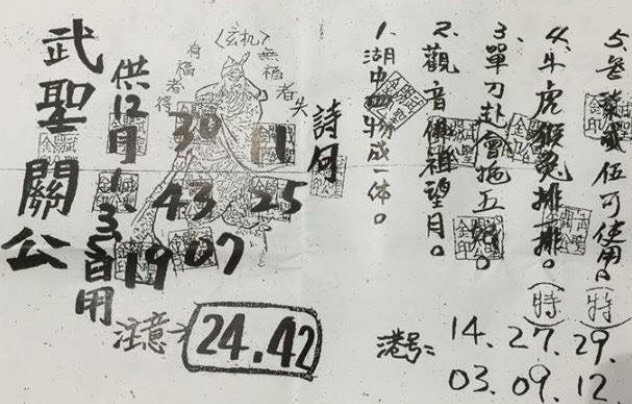 武聖關公
供12月1.3.5日用
〈玄机〉
有福者得
無福者失
30 11
43 25
19 07
注意
24.42
詩句
1.湖中四物成一体。
2.觀音佛祖望月。
3.單刀赴會拖五。
4.牛虎猴兔排排。(特)
5.叁柒贰伍可使用。(特)
港号:
14. 27. 29.
03. 09. 12.